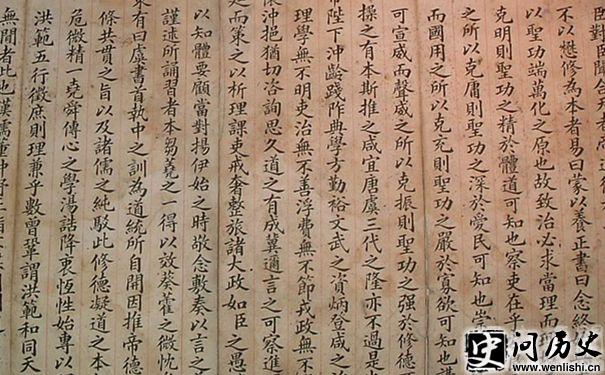 臣對臣聞
不以懋修為本者易曰蒙以養正書曰念終
以聖功端萬化之原也故致治必求當理而
克明則聖功之精於體道可知也察吏在乎
之所以克庸則聖功之深於愛民可知也崇
而國用之所以克充則聖功之嚴於寡欲可知也
可宣威而聲威之所以克振則聖功之强於修德
操之有本斯推之咸宜唐虞三代之隆亦不過是
帝陛下沖齡踐阼典學方勤裕文武之資炳登咸之
理學無不明吏治無不善浮費無不節戎政無不
懷沖挹猶切咨詢思久道之有成冀邇言之可察進
而策之以析理課吏戒奢整旅諸大政如臣之愚
以知體要顧當對揚伊始之時敬念敷奏以言之
謹述所誦習者本芻蕘之一得以放葵藿之微忱
來有曰虞書首執中之訓為道統所自開因推帝德
條共貫之旨以及諸儒之純駁此修德凝道之本
危微精一堯舜傳心之學湯誥降衷恆性始專以
洪範五行徵庶則理兼乎數曾鞏謂洪範和同天
無聞者此也漢儒董仲舒三
问历史
www.wenlishi.cn